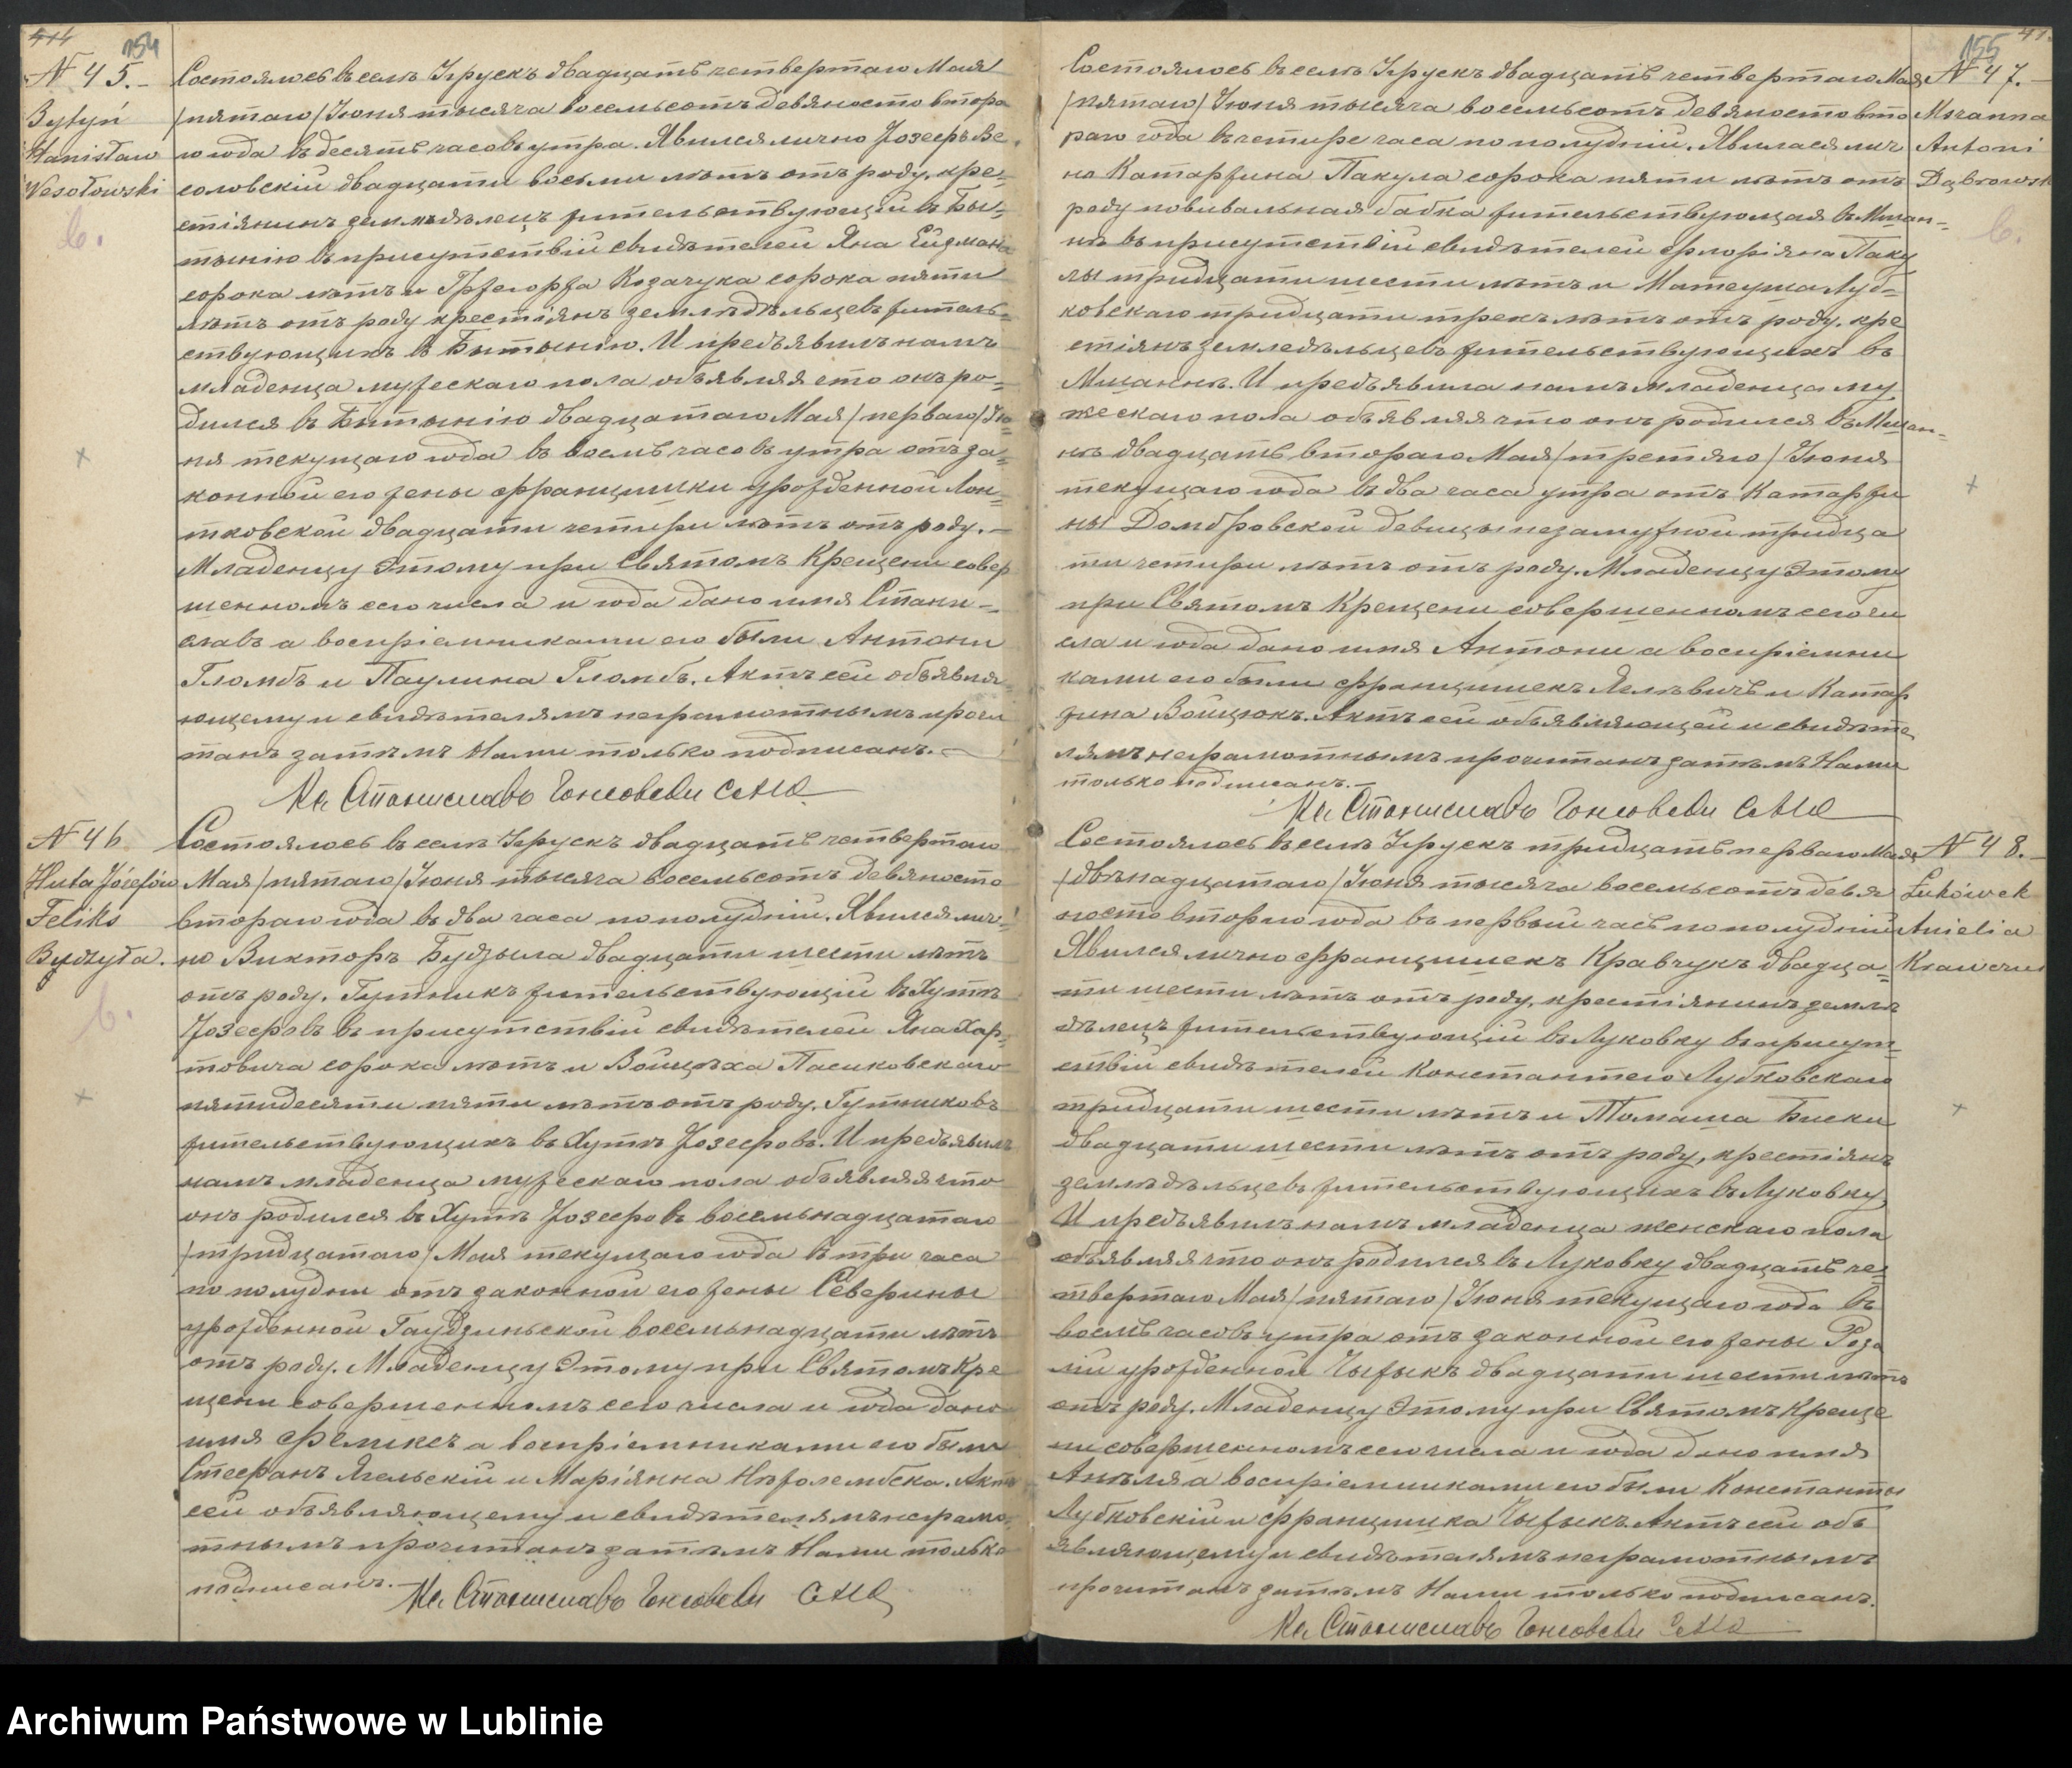 154
N 45.-
Bytyń
Stanisław
Wesołowski
Состоялось въ селѣ Угрускъ двадцать четвертаго Мая
/пятаго/ Іюня тысяча восемьсотъ девяносто второ
го года въ десять часовъ утра. Явился лично Іозефъ Ве
соловскій двадцати восьми лѣтъ отъ роду, кре-
стіянинъ земледѣлецъ жительствующій въ Бы-
тынію въ присутствіи свидѣтелей Яна
сорока лѣтъ и Гржегоржа Козачука сорока пяти
лѣтъ отъ роду крестіянъ земледѣльцевъ житель-
ствующихъ въ Бытынію. И предъявилъ намъ
младенца мужескаго пола объявляя что онъ ро-
дился въ Бытынію двадцатаго Мая /перваго/ Ію-
ня текущаго года въ восемь часовъ утра отъ за-
конной его жены Францишки урожденной Лон-
тковской двадцати четыри лѣтъ отъ роду.-
Младенцу этому при Святомъ Крещени совер
шенномъ сего числа и года дано имя Стани-
славъ а воспріемниками его были Антони
Гломбъ и Паулина Гломбъ. Актъ сей объявля
ющему и свидѣтелямъ неграмотнымъ прочи
танъ затѣмъ Нами только подписанъ.-
Кс. Станиславъ
N 46
Huta Józefów
Feliks
Budzyła.
Состоялось въ селѣ Угрускъ двадцать четвертаго
Мая /пятаго/ Іюня тысяча восемьсотъ девяносто
втораго года въ два часа по полудніи. Явился лич-
но Викторъ Будзыла двадцати шести лѣтъ
отъ роду. Гутникъ жительствующій въ Хутѣ
Юзефовъ въ присутствіи свидѣтелей Яна Хар-
товича сорока лѣтъ и Войцѣха Пасиковскаго
пятидесяти пяти лѣтъ отъ роду. Гутниковъ
жительствующихъ въ Хутѣ Юзефовъ. И предъявилъ
намъ младенца мужескаго пола объявляя что
онъ родился въ Хутѣ Юзефовъ восемьнадцатаго
/тридцатаго/ Мая текущаго года въ три часа
по полудни отъ законной его жены Северины
урожденной Гаудзиньской восемьнадцати лѣтъ
отъ роду. Младенцу этому при Святомъ Кре
щени совершенномъ сего числа и года дано
имя Феликсъ а воспріемниками его были
Стефанъ Ягельскій и Маріянна Нѣголембска. Актъ
сей объявляющему и свидѣтелямъ неграмо-
тнымъ прочитанъ затѣмъ Нами только
подписанъ.-
Кс. Станиславъ
155
N 47.-
Mszanna
Antoni
Dąbrowsk
Состоялось въ селѣ Угрускъ двадцать четвертаго Мая
/пятаго/ Іюня тысяча восемьсотъ девяносто вто
раго года въ четыре часа по полудніи. Явилася лич
но Катаржина Пакула сорока пяти лѣтъ отъ
роду повивальная бабка жительствующая въ Мшан-
нѣ въ присутствіи свидѣтелей Флоріяна Паку
лы тридцати шести лѣтъ и Матеуша Луб-
ковскаго тридцати трехъ лѣтъ отъ роду, кре
стіянъ земледѣльцевъ жительствующихъ въ
Мшаннѣ. И предъявила намъ младенца му
жескаго пола объявляя что онъ родился въ Мшан-
нѣ двадцать втораго Мая /третяго/ Іюня
текущаго года въ два часа утра отъ Катаржи
ны Домбровской девицы незамужной тридца
ти четыри лѣтъ отъ роду. Младенцу этому
при Святомъ Крещени совершенномъ сего чи
сла и года дано имя Антони а воспріемни
ками его были Францишекъ и Катар
жина Войцюкъ. Актъ сей объявляющей и свидѣте
лямъ неграмотнымъ прочитанъ затѣмъ Нами
только подписанъ.-
Кс. Станиславъ
N 48.-
Łukówek
Anielia
Krawczuk
Состоялось въ селѣ Угрускъ тридцать перваго Мая
/двѣнадцатаго/ Іюня тысяча восемьсотъ девя
носто втораго года въ первый часъ по полудніи
Явился лично Францишекъ Кравчукъ двадца-
ти шести лѣтъ отъ роду, крестіянинъ землѣ
дѣлецъ жительствующій въ Луковку въ присут-
ствіи свидѣтелей Константего Лубковскаго
тридцати шести лѣтъ и Томаша Биски
двадцати шести лѣтъ отъ роду, крестіянъ
землѣдѣльцевъ жительствующихъ въ Луковку.
И предъявилъ намъ младенца женскаго пола
объявляя что онъ родился въ Луковку двадцать че-
твертаго Мая /пятаго/ Іюня текущаго года въ
восемь часовъ утра отъ законной его жены Роза
ліи урожденной Чыжыкъ двадцати шести лѣтъ
отъ роду. Младенцу этому при Святомъ Креще
ни совершенномъ сего числа и года дано имя
Анѣля а воспріемниками его были Константы
Лубковскій и Францишка Чыжыкъ. Актъ сей объ
являющему и свидѣтелямъ неграмотнымъ
прочитанъ затѣмъ Нами только подписанъ.
Кс. Станиславъ
Archiwum Państwowe w Lublinie